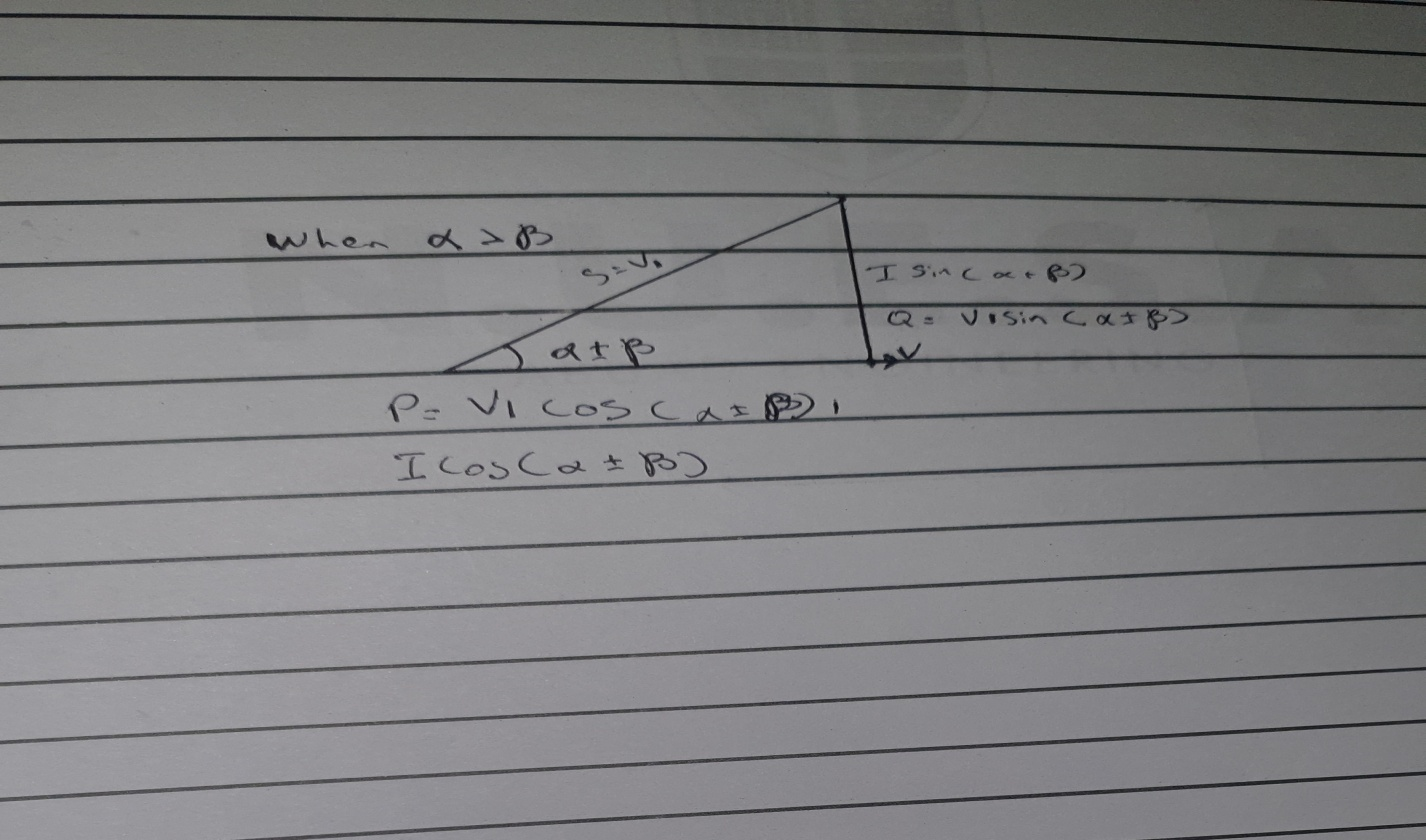 When α > β
S = VI
I sin (α ± β)
Q = VI sin (α ± β)
α ± β
V
P = VI cos (α ± β),
I cos (α ± β)